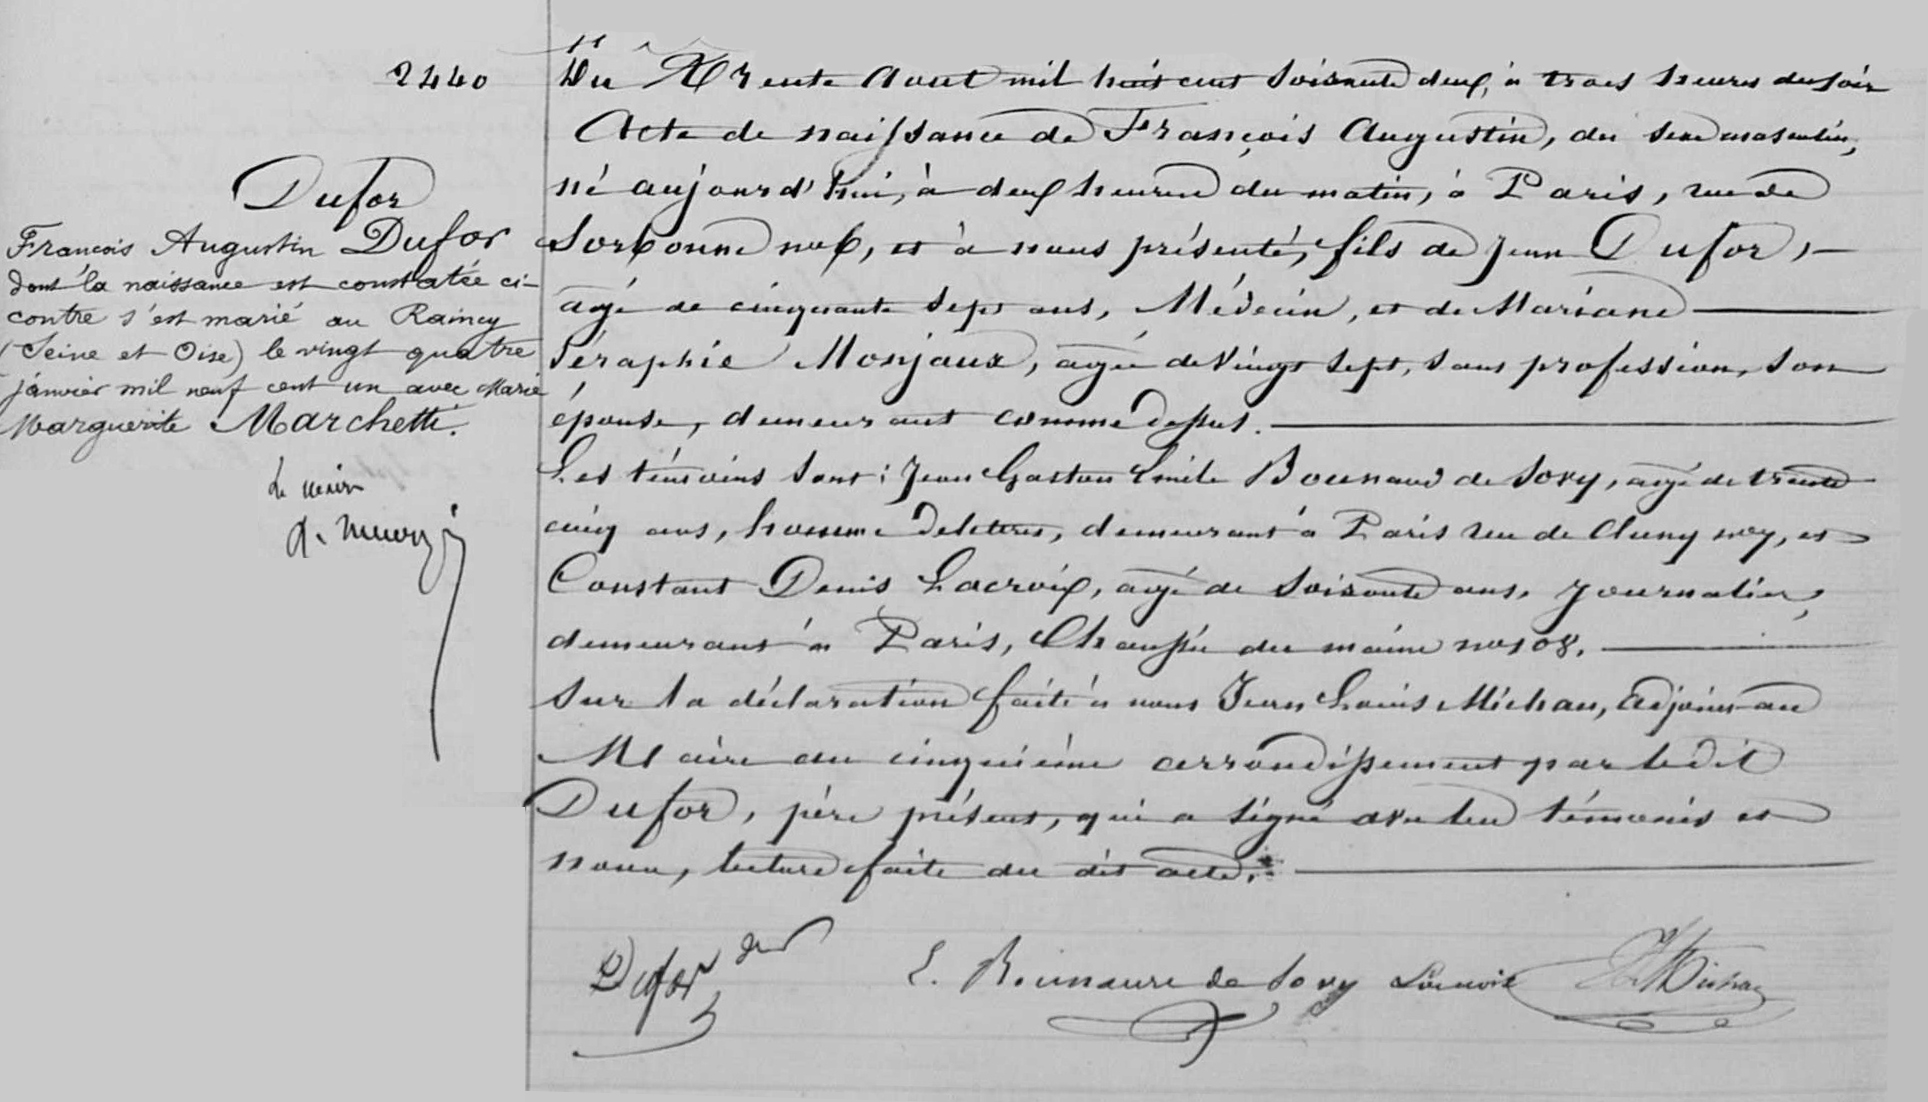 2440
Dufor
François Augustin Dufor
dont la naissance est constatée ci-
contre s'est marié au Raincy
(Seine et Oise) le vingt quatre
janvier mil neuf cent un avec Marie
Marguerite Marchetti.
Le maire
Du Trente Aout mil huit cent soixante deux, à trois heures du soir
Acte de naissance de François Augustin, du sexe masculin,
né aujourd'hui, à deux heures du matin, à Paris, rue de
Sorbonne no 6, et à nous présenté, fils de Jean Dufor,
agé de cinquante sept ans, Médecin, et de Mariane
Séraphie Monjaux, agée de vingt sept, sans profession, son
épouse, demeurant comme dessus.
Les témoins sont: Jean Gaston Emile Bounaud de Sovy, agé de trente
cinq ans, homme de lettres, demeurant à Paris rue de Cluny no 7, et
Constant Denis Lacroix, agé de soixante ans, Journalier,
demeurant à Paris, Chaussée du maine no 108.
Sur la déclaration faite à nous Jean Louis Michau, adjoint au
Maire du cinquième arrondissement par ledit
Dufor, père présent, qui a signé avec les témoins et
nous, lecture faite du dit acte.
Dufor
E. de Sovy Lacroix Michau